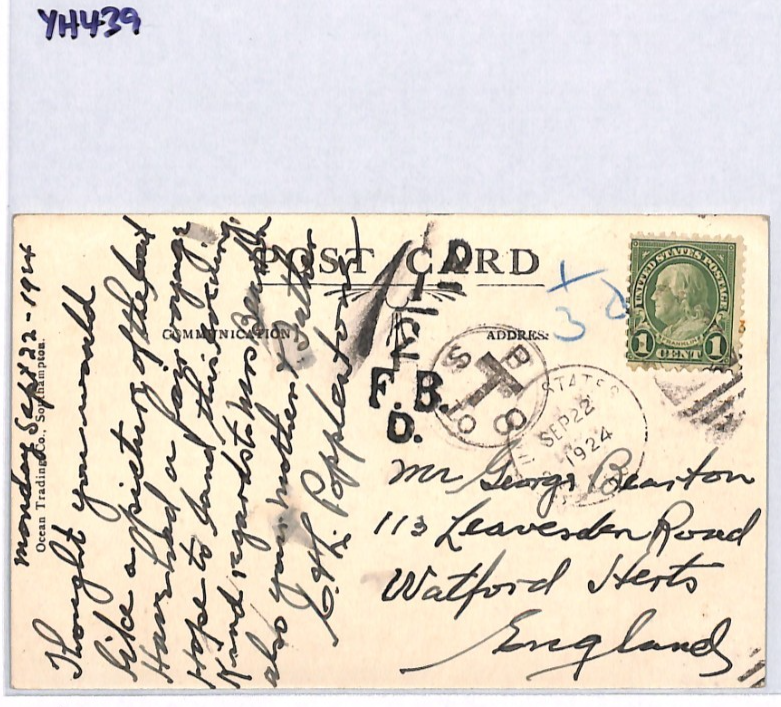 YH439
POST CARD
COMMUNICATION
ADDRESS
Ocean Trading Co. Southampton.
Monday Sept 22 - 1924
Thought you would
like a picture of the boat
Have had a fair voyage
Hope to land this evening.
Kind regards to Mrs Bearton
also your mother & Father
C. H. Poppleton
UNITED STATES POSTAGE
FRANKLIN
1 CENT 1
3
3d
1D
F.B.
D.
T
STATES
SEP 22
1924
Mr George Bearton
113 Leavesden Road
Watford Herts
England